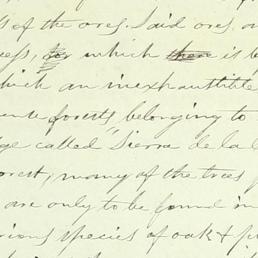 of the ores. Said ores
which is
which an inexhaustible
forests" belonging to
called Sierra de la
forest, many of the trees
are only to be found in
species of oak &